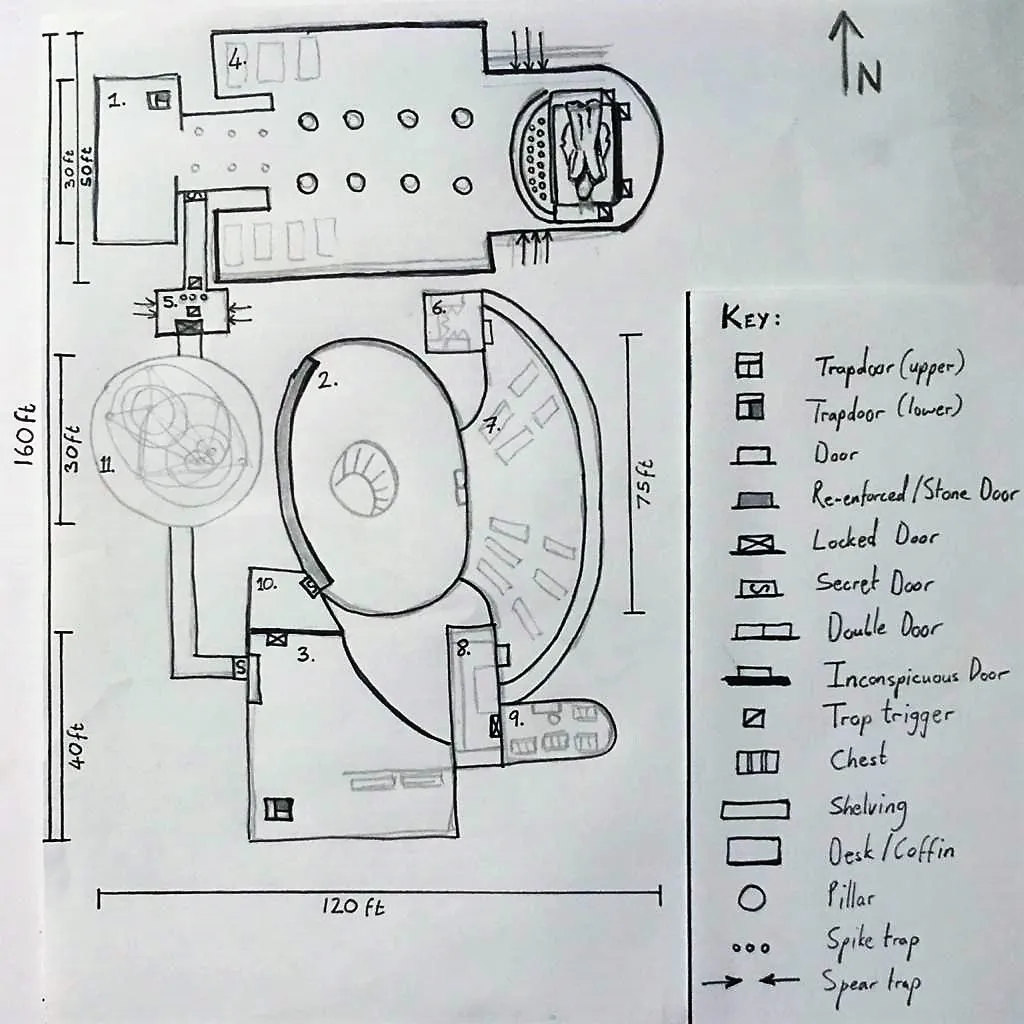 N
4.
1.
30ft
50ft
5.
S
6.
2.
7.
160ft
30ft
11.
75ft
10.
S
3.
S
8.
9.
40ft
120 ft
KEY:
Trapdoor (upper)
Trapdoor (lower)
Door
Re-enforced/Stone Door
Locked Door
S
Secret Door
Double Door
Inconspicuous Door
Trap trigger
Chest
Shelving
Desk/Coffin
Pillar
Spike trap
Spear trap